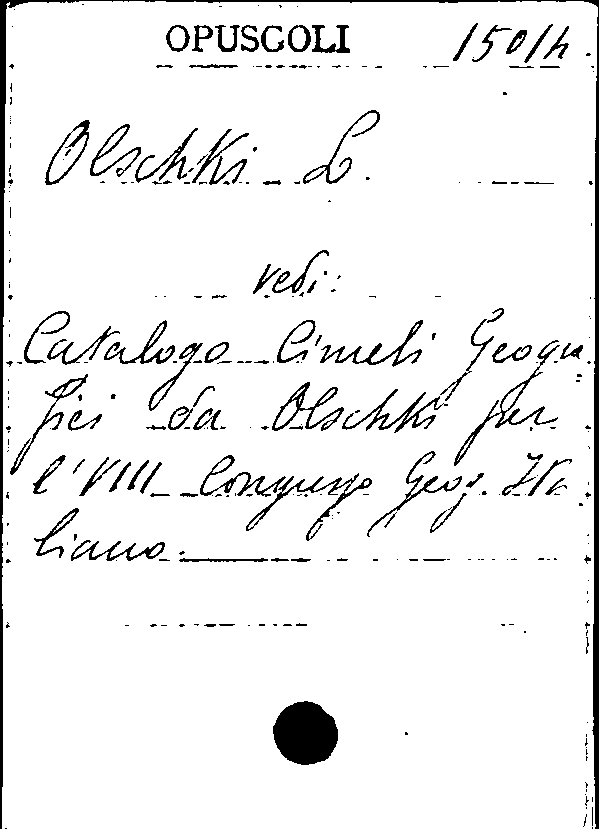 OPUSCOLI 150/h.
Olschki L.
vedi:
Catalogo Cimeli Geogra
fici da Olschki per
l'VIII Congresso Geog. Ita
liano.